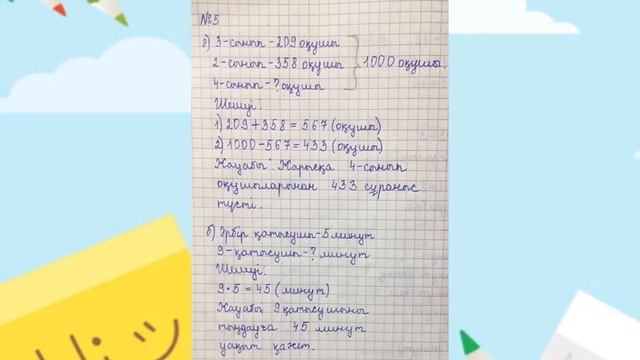 №5
г) 3-сынып - 209 оқушы
2-сынып - 358 оқушы } 1000 оқушы.
4-сынып - ? оқушы
Шешуі:
1) 209 + 358 = 567 (оқушы)
2) 1000 - 567 = 433 (оқушы)
Жауабы: Жарысқа 4-сынып
оқушыларынан 433 сұраныс
түсті.
б) Әрбір қатысушы - 5 минут
9 - қатысушы - ? минут
Шешуі:
9 · 5 = 45 (минут)
Жауабы 9 қатысушыны
тыңдауға 45 минут
уақыт қажет.